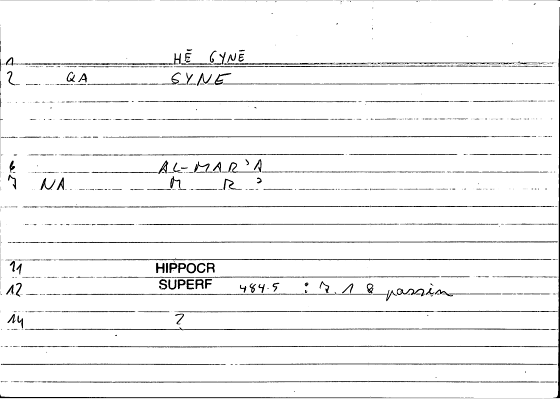 1 HĒ GYNĒ
2 QA GYNE
6 AL-MAR'A
7 NA M R '
11 HIPPOCR
12 SUPERF 484.5 : 7.1 & passim
14 2